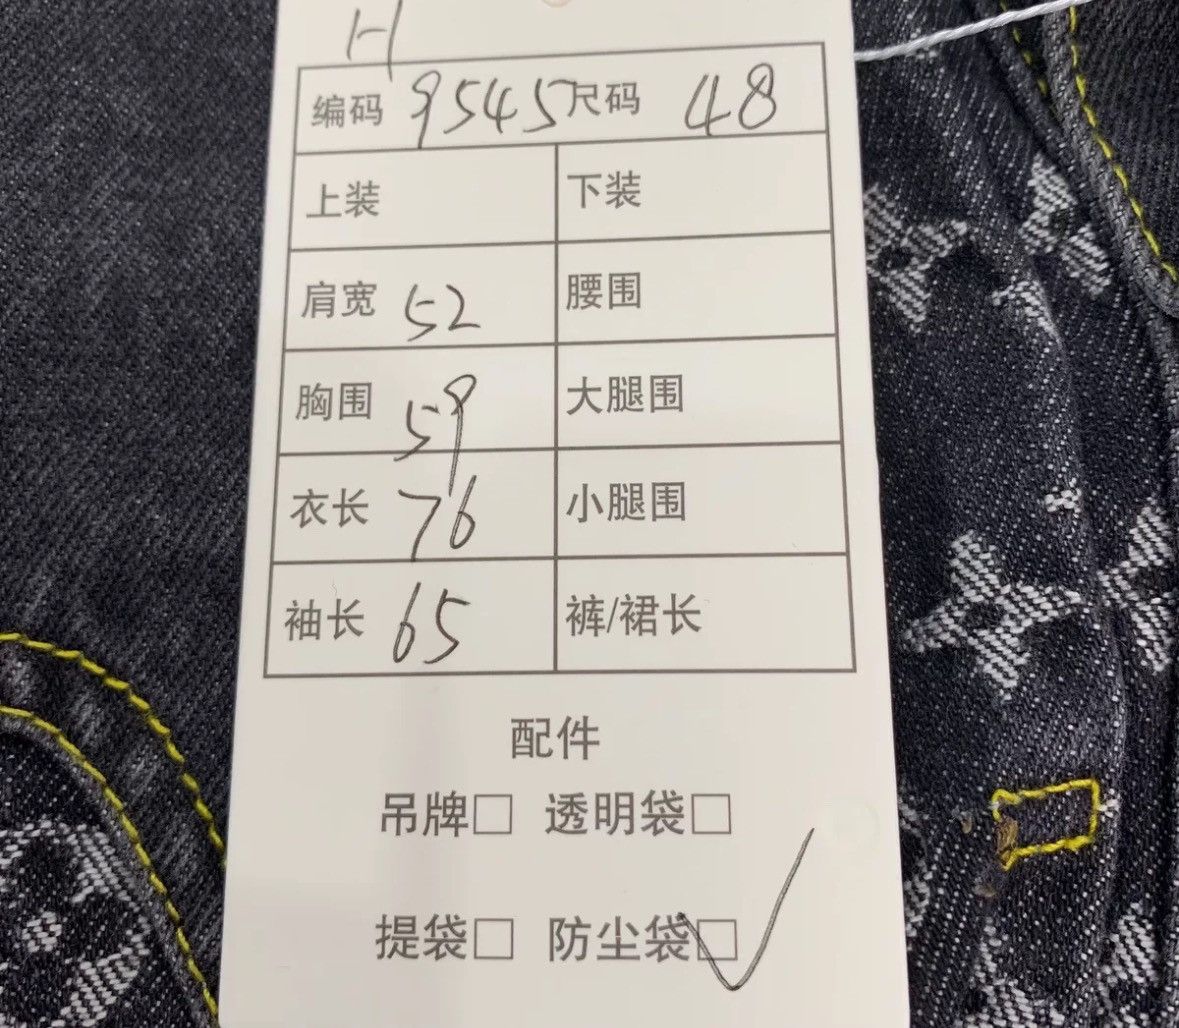 H
编码 9545 尺码 48
上装 下装
肩宽 52 腰围
胸围 59 大腿围
衣长 76 小腿围
袖长 65 裤/裙长
配件
吊牌□ 透明袋□
提袋□ 防尘袋□